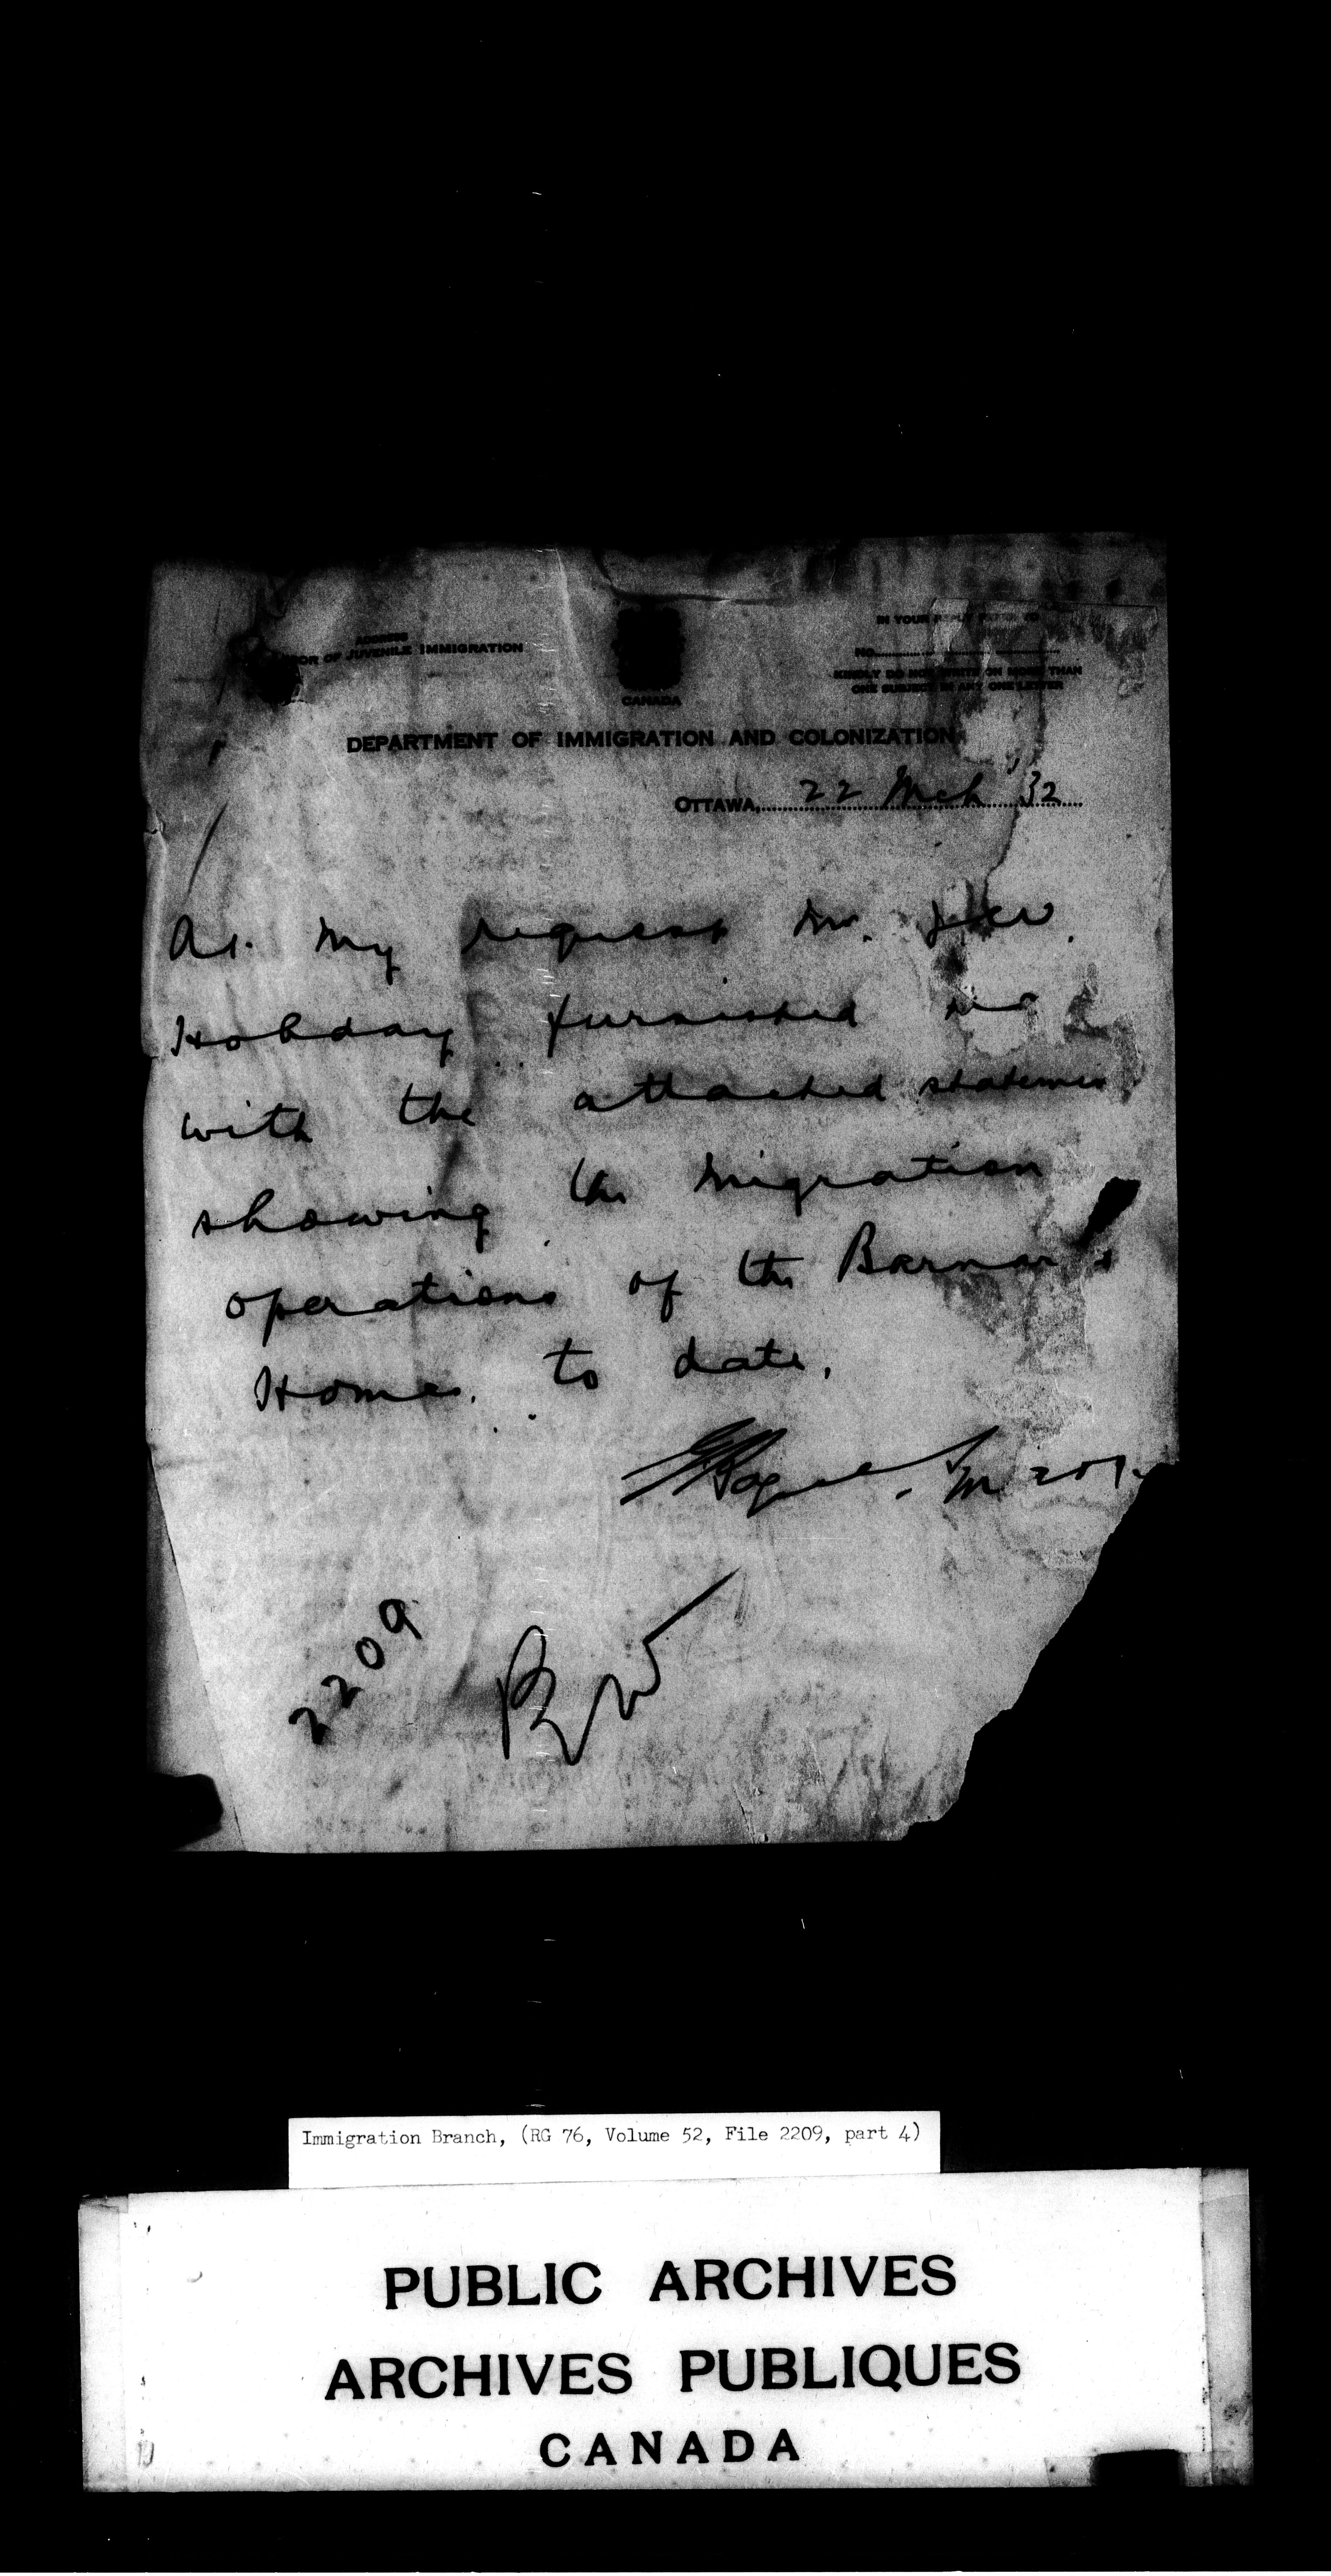 ADDRESS
OR OF JUVENILE IMMIGRATION
IN YOUR REPLY REFER TO
NO.
KINDLY DO NOT WRITE ON MORE THAN
ONE SUBJECT IN ANY ONE LETTER
CANADA
DEPARTMENT OF IMMIGRATION AND COLONIZATION
OTTAWA, 22 Mch '32
At my request Mr. Geo.
Hobday furnished me
with the attached statemen
showing the migration
operations of the Barnar 's
Homes. to date.
2209
Immigration Branch, (RG 76, Volume 52, File 2209, part 4)
PUBLIC ARCHIVES
ARCHIVES PUBLIQUES
CANADA